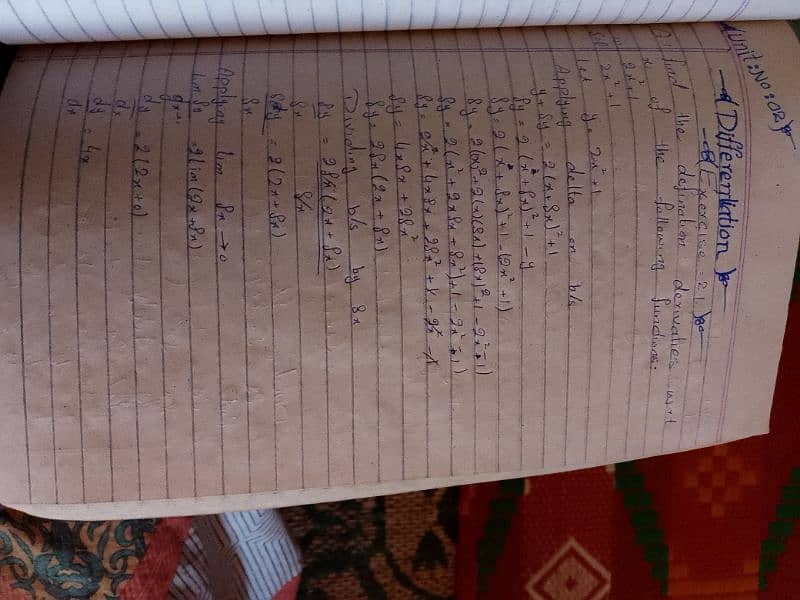 Unit: No: 02
Differentiation
Exercise = 2.1
Q.1 find the defination derivaties w.r.t
x of the following functions:
2x²+1
Sol 2x²+1
Let y = 2x²+1
Applying delta on b/s
y+δy = 2(x+δx)²+1
δy = 2(x+δx)²+1-y
δy = 2(x+δx)²+1-(2x²+1)
δy = 2(x²+2(x)(δx)+(δx)²+1-2x²-1)
δy = 2(x²+2xδx+δx²)+1-2x²-1)
δy = 2x²+4xδx+2δx²+1-2x²-1
δy = 4xδx+2δx²
δy = 2δx(2x+δx)
Dividing b/s by δx
δy = 2δx(2x+δx)
δx δx
δy = 2(2x+δx)
δx
Applying lim δx→0
=2lim(2x+δx)
dy = 2(2x+0)
dx
dy = 4x
dx